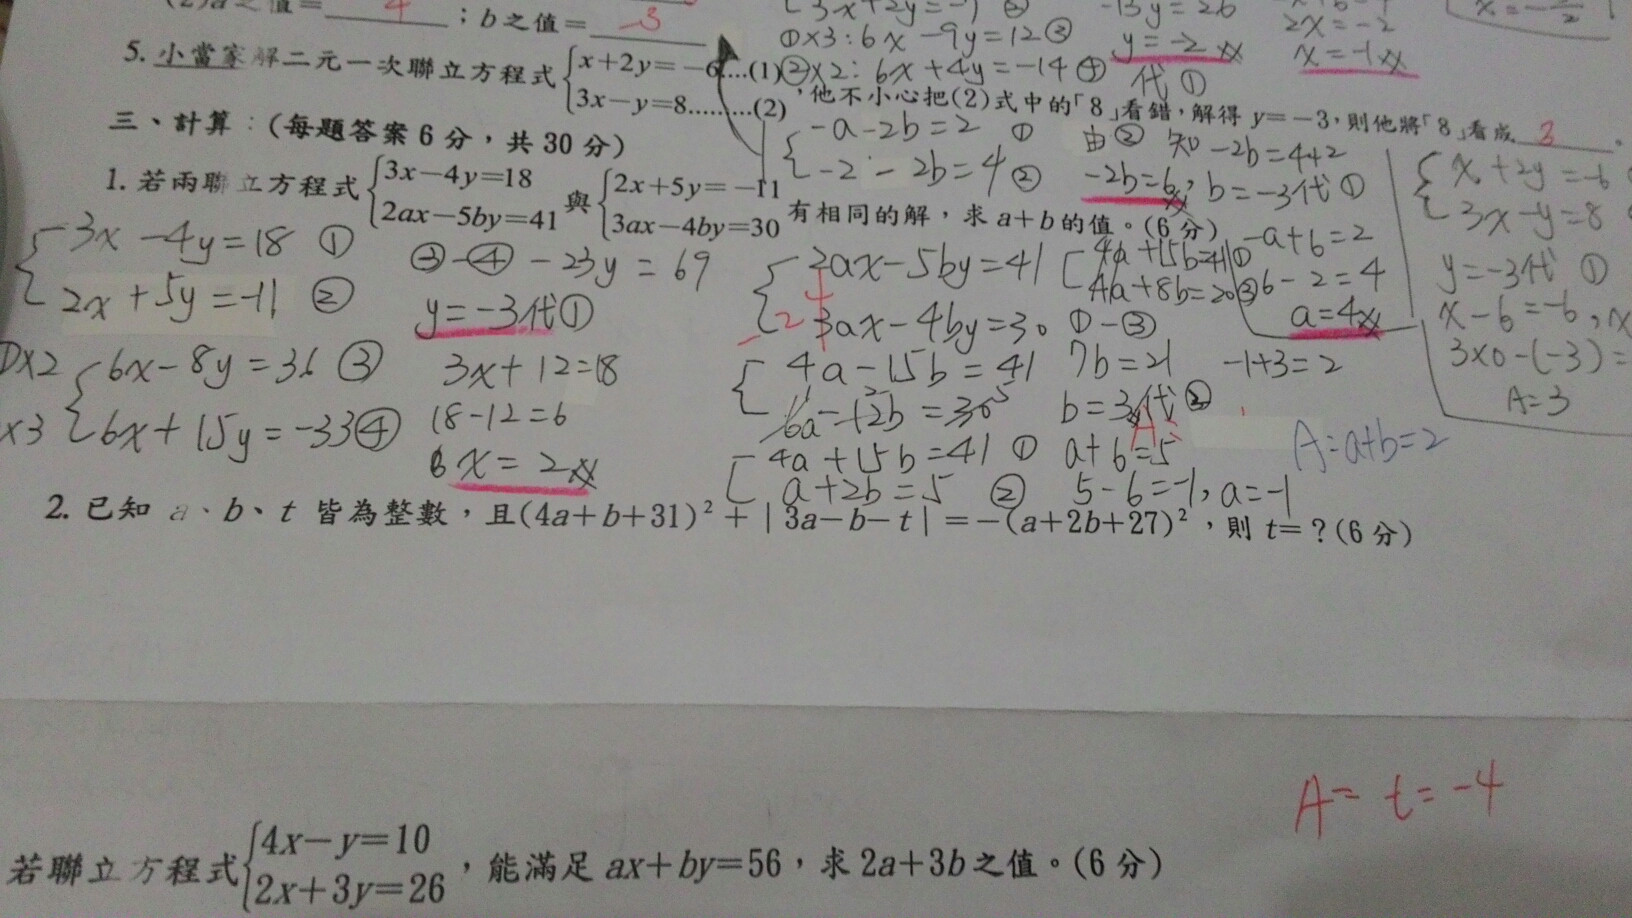 (2)a之值=4；b之值=-3
5. 小當家解二元一次聯立方程式{x+2y=-6...(1)
3x-y=8.........(2)，他不小心把(2)式中的「8」看錯，解得 y=-3，則他將「8」看成 3 。
3x+2y=-7 ②
①×3:6x-9y=12③
②×2:6x+4y=-14④
-13y=26
y=-2
代①
2x=-2
x=-1
三、計算：(每題答案6分，共30分)
-a-2b=2 ①
-2-2b=4②
由② 知 -2b=4+2
-2b=6, b=-3代①
-a+6=2
6-2=4
a=4
x+2y=-6
3x-y=8
y=-3代①
x-6=-6,
3×0-(-3)=
A=3
1. 若兩聯立方程式{3x-4y=18
2ax-5by=41與{2x+5y=-11
3ax-4by=30有相同的解，求a+b的值。(6分)
3x-4y=18 ①
2x+5y=-11 ②
①×2 6x-8y=36③
×3 6x+15y=-33④
③-④ -23y=69
y=-3代①
3x+12=18
18-12=6
x=2
2ax-5by=41
3ax-4by=30
4a-15b=41
6a-12b=30 5
4a+15b=41 ①
a+2b=5 ②
4a+15b=41①
4a+8b=20③
①-③
7b=21
b=3代②
a+6=5
5-6=-1, a=-1
-1+3=2
A=a+b=2
2. 已知 a、b、t 皆為整數，且(4a+b+31)²+|3a-b-t|=-(a+2b+27)²，則 t=？(6分)
A= t=-4
若聯立方程式{4x-y=10
2x+3y=26，能滿足 ax+by=56，求2a+3b之值。(6分)